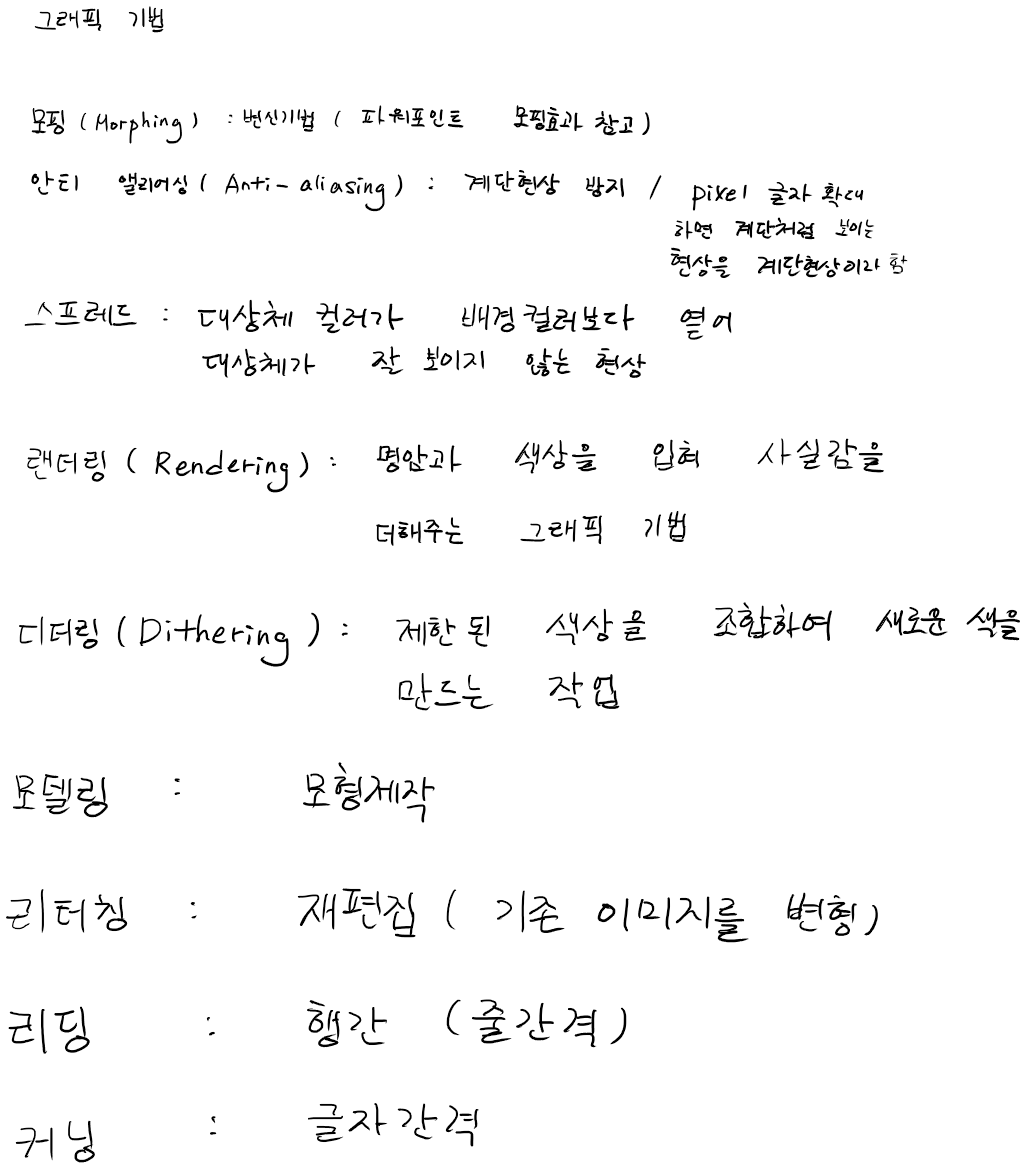 그래픽 기법
모핑 (Morphing) : 변신기법 ( 파워포인트 모핑효과 참고)
안티 앨리어싱 ( Anti-aliasing) : 계단현상 방지 / pixel 글자 확대
하면 계단처럼 보이는
현상을 계단현상이라 함
스프레드 : 대상체 컬러가 배경컬러보다 옅어
대상체가 잘 보이지 않는 현상
랜더링 ( Rendering) : 명암과 색상을 입혀 사실감을
더해주는 그래픽 기법
디더링 (Dithering) : 제한된 색상을 조합하여 새로운 색을
만드는 작업
모델링 : 모형제작
리터칭 : 재편집 ( 기존 이미지를 변형)
리딩 : 행간 (줄간격)
커닝 : 글자간격